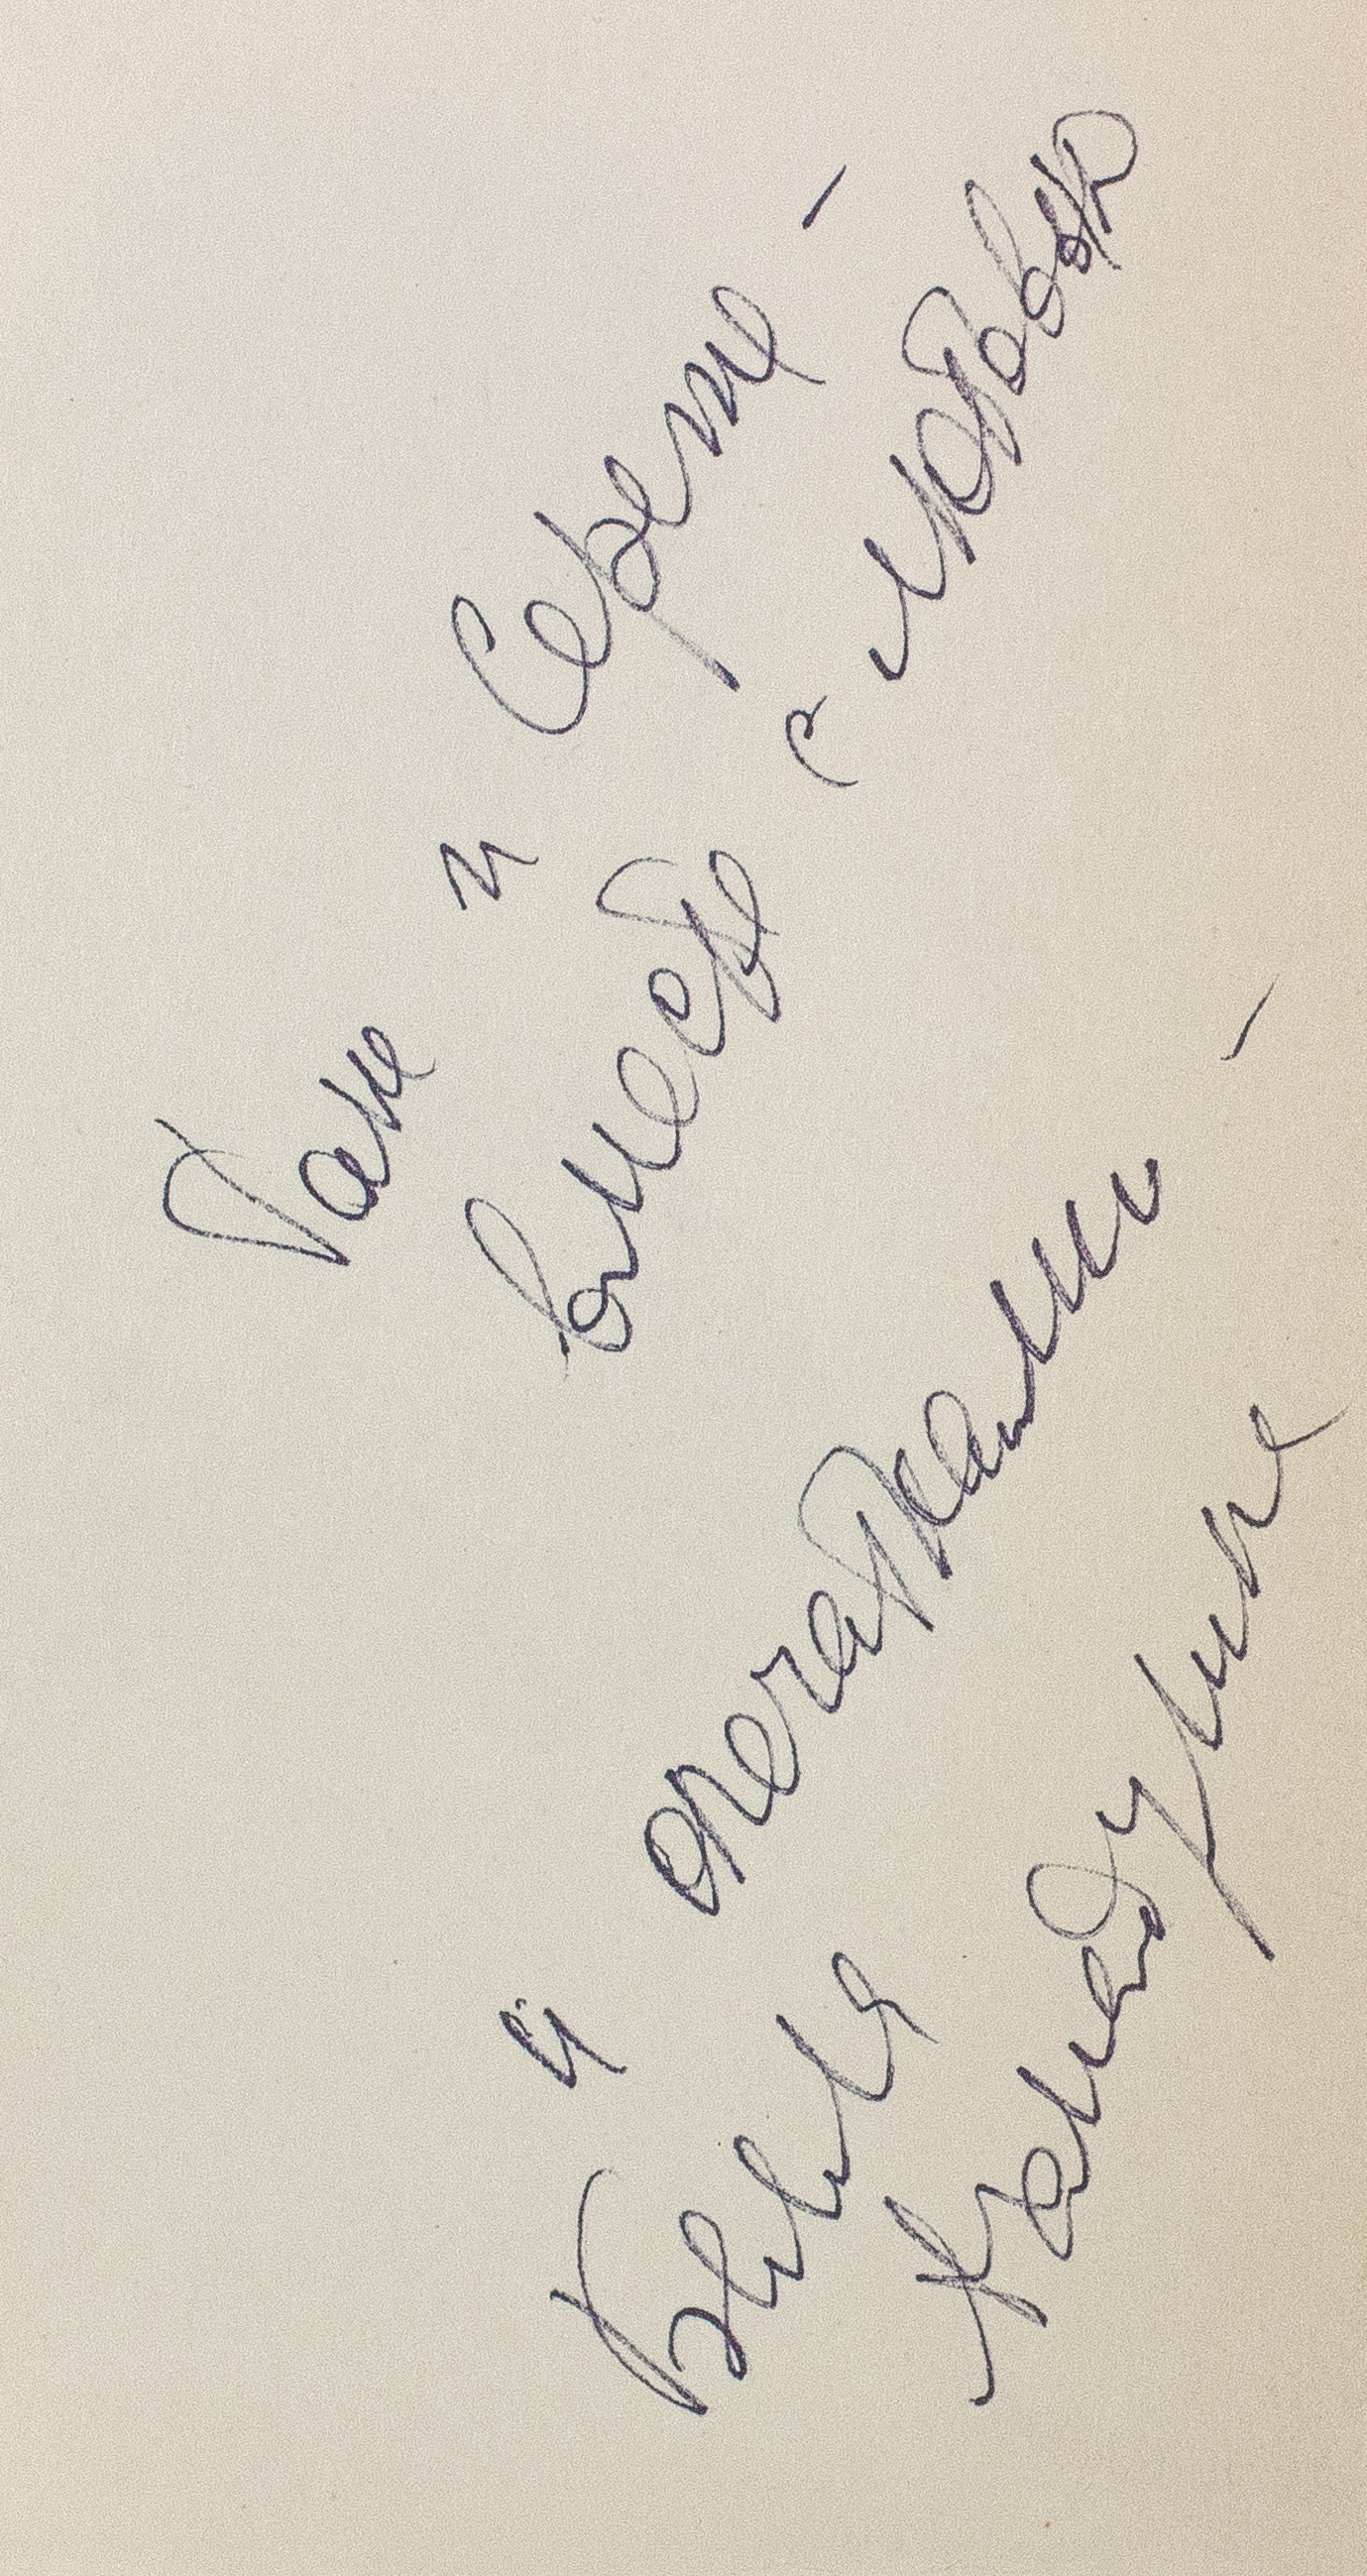 Тане и Сереже –
вместе с любовью
и опечатками –
Белла
Ахмадулина